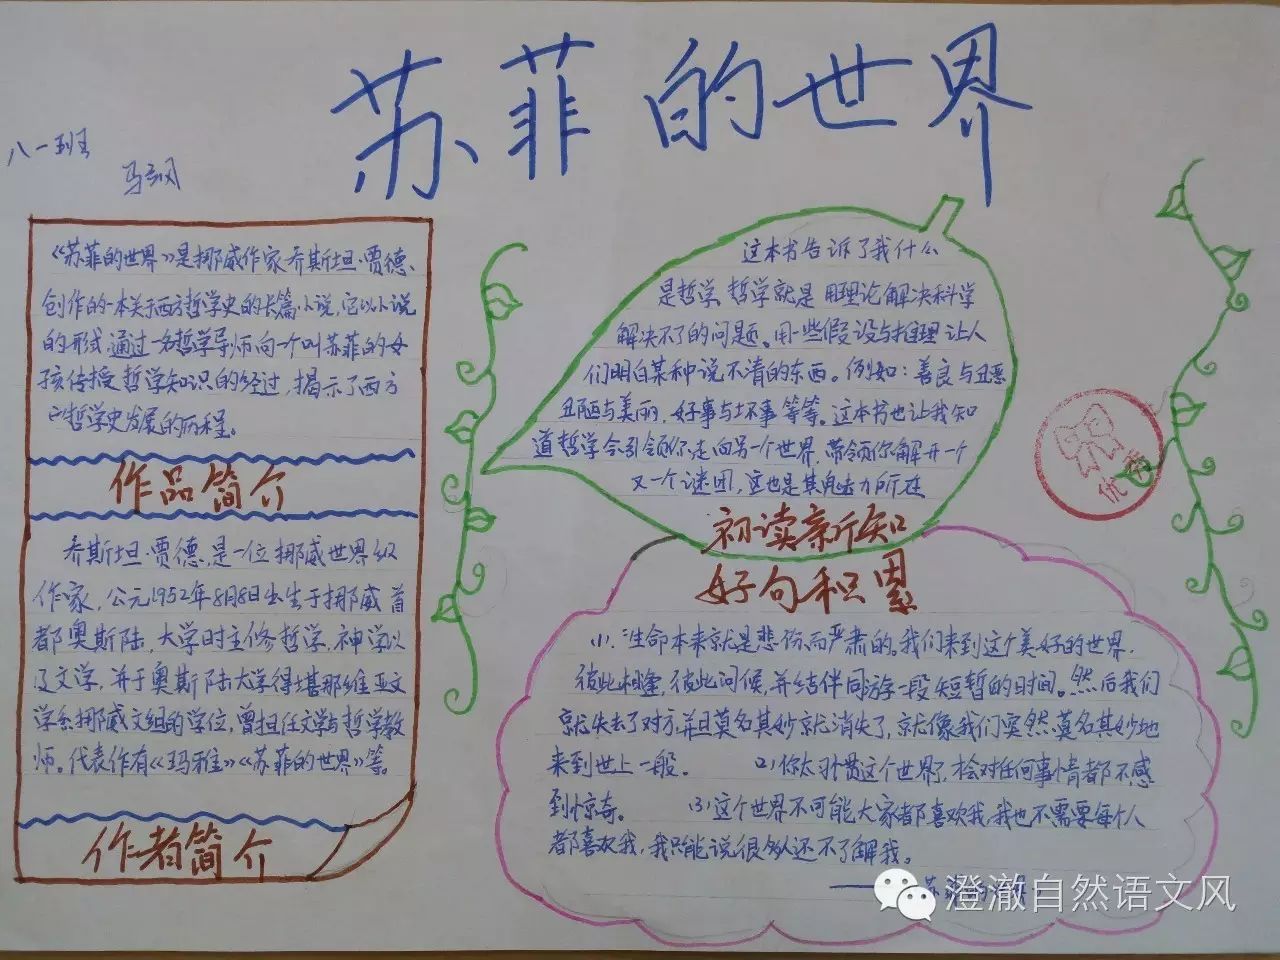 苏菲的世界
八一班
《苏菲的世界》是挪威作家乔斯坦·贾德、
创作的一本关于西方哲学史的长篇小说,它以小说
的形式,通过一名哲学导师向一个叫苏菲的女
孩传授哲学知识的经过,揭示了西方
哲学史发展的历程。
作品简介
乔斯坦·贾德,是一位挪威世界级
作家,公元1952年8月8日出生于挪威首
都奥斯陆,大学时主修哲学,神学以
及文学,并于奥斯陆大学得堪那维亚文
学系挪威文组的学位,曾担任文学与哲学教
师。代表作有《玛雅》《苏菲的世界》等。
作者简介
这本书告诉了我什么
是哲学,哲学就是用理论解决科学
解决不了的问题。用一些假设与推理让人
们明白某种说不清的东西。例如:善良与丑恶
丑陋与美丽,好事与坏事等等。这本书也让我知
道哲学会引领你走向另一个世界,带领你解开一个
又一个谜团,这也是其魅力所在
初读亲所知
优秀
好句积累
(1)、生命本来就是悲伤而严肃的。我们来到这个美好的世界,
彼此相逢,彼此问候,并结伴同游一段短暂的时间。然后我们
就失去了对方,并且莫名其妙就消失了,就像我们突然莫名其妙地
来到世上一般。 (2)、你太习惯这个世界了,才会对任何事情都不感
到惊奇。 (3)这个世界不可能大家都喜欢我,我也不需要每个人
都喜欢我,我只能说很多人还不了解我。
澄澈自然语文风